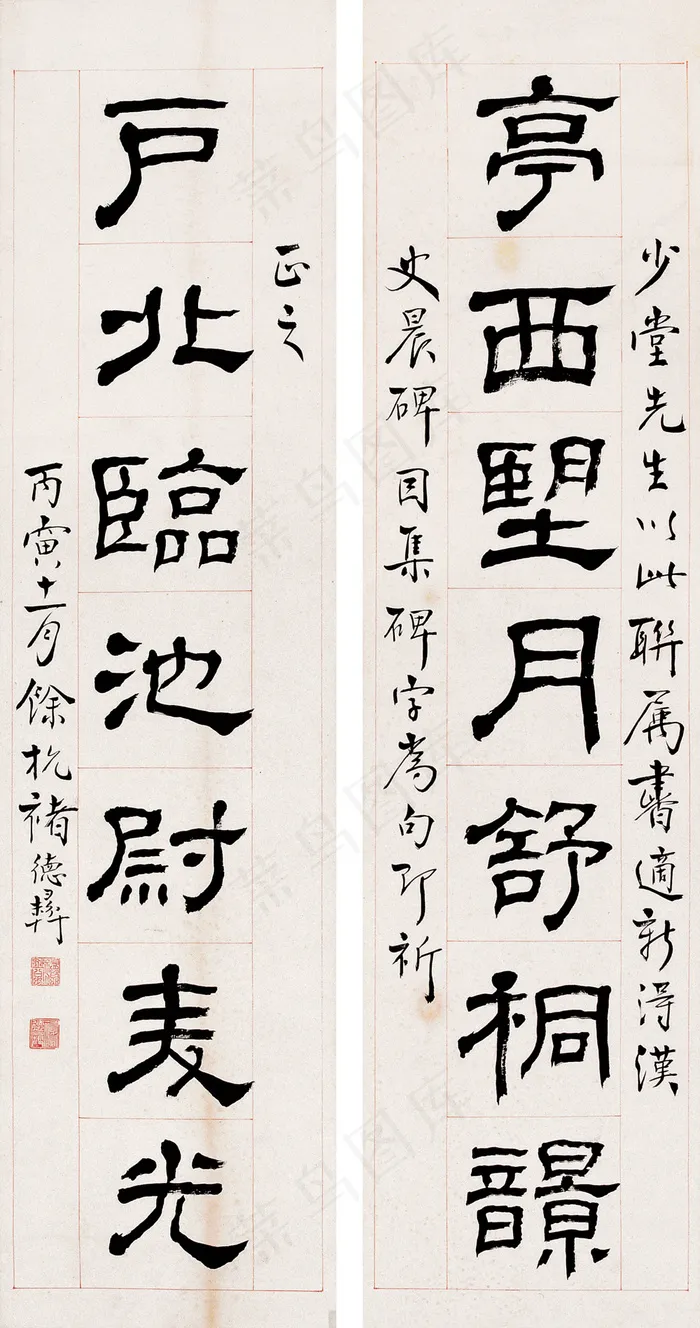 少堂先生以此聯属書適新得漢
亭西朢月舒桐韻
史晨碑因集碑字為句即祈
正之
戶北臨池尉麦光
丙寅十一月餘杭褚德彝
菜鸟图库